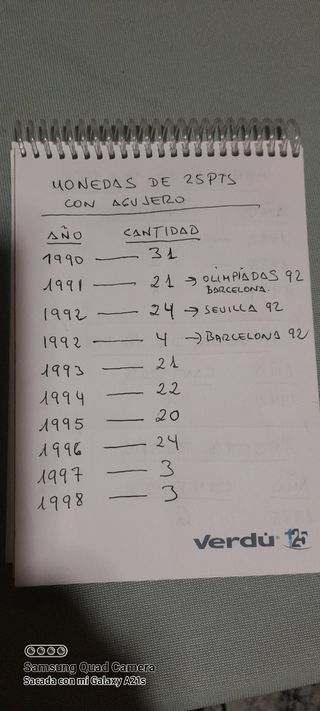 MONEDAS DE 25PTS
CON AGUJERO
AÑO CANTIDAD
1990 — 31
1991 — 21 → OLIMPÍADAS 92
BARCELONA.
1992 — 24 → SEVILLA 92
1992 — 4 → BARCELONA 92
1993 — 21
1994 — 22
1995 — 20
1996 — 24
1997 — 3
1998 — 3
verdú 125
Samsung Quad Camera
Sacada con mi Galaxy A21s